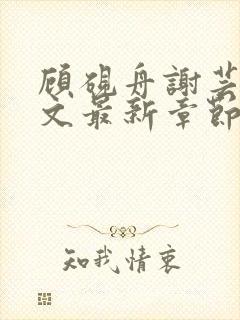 顾砚舟謝芸
文最新章節
知我情衷